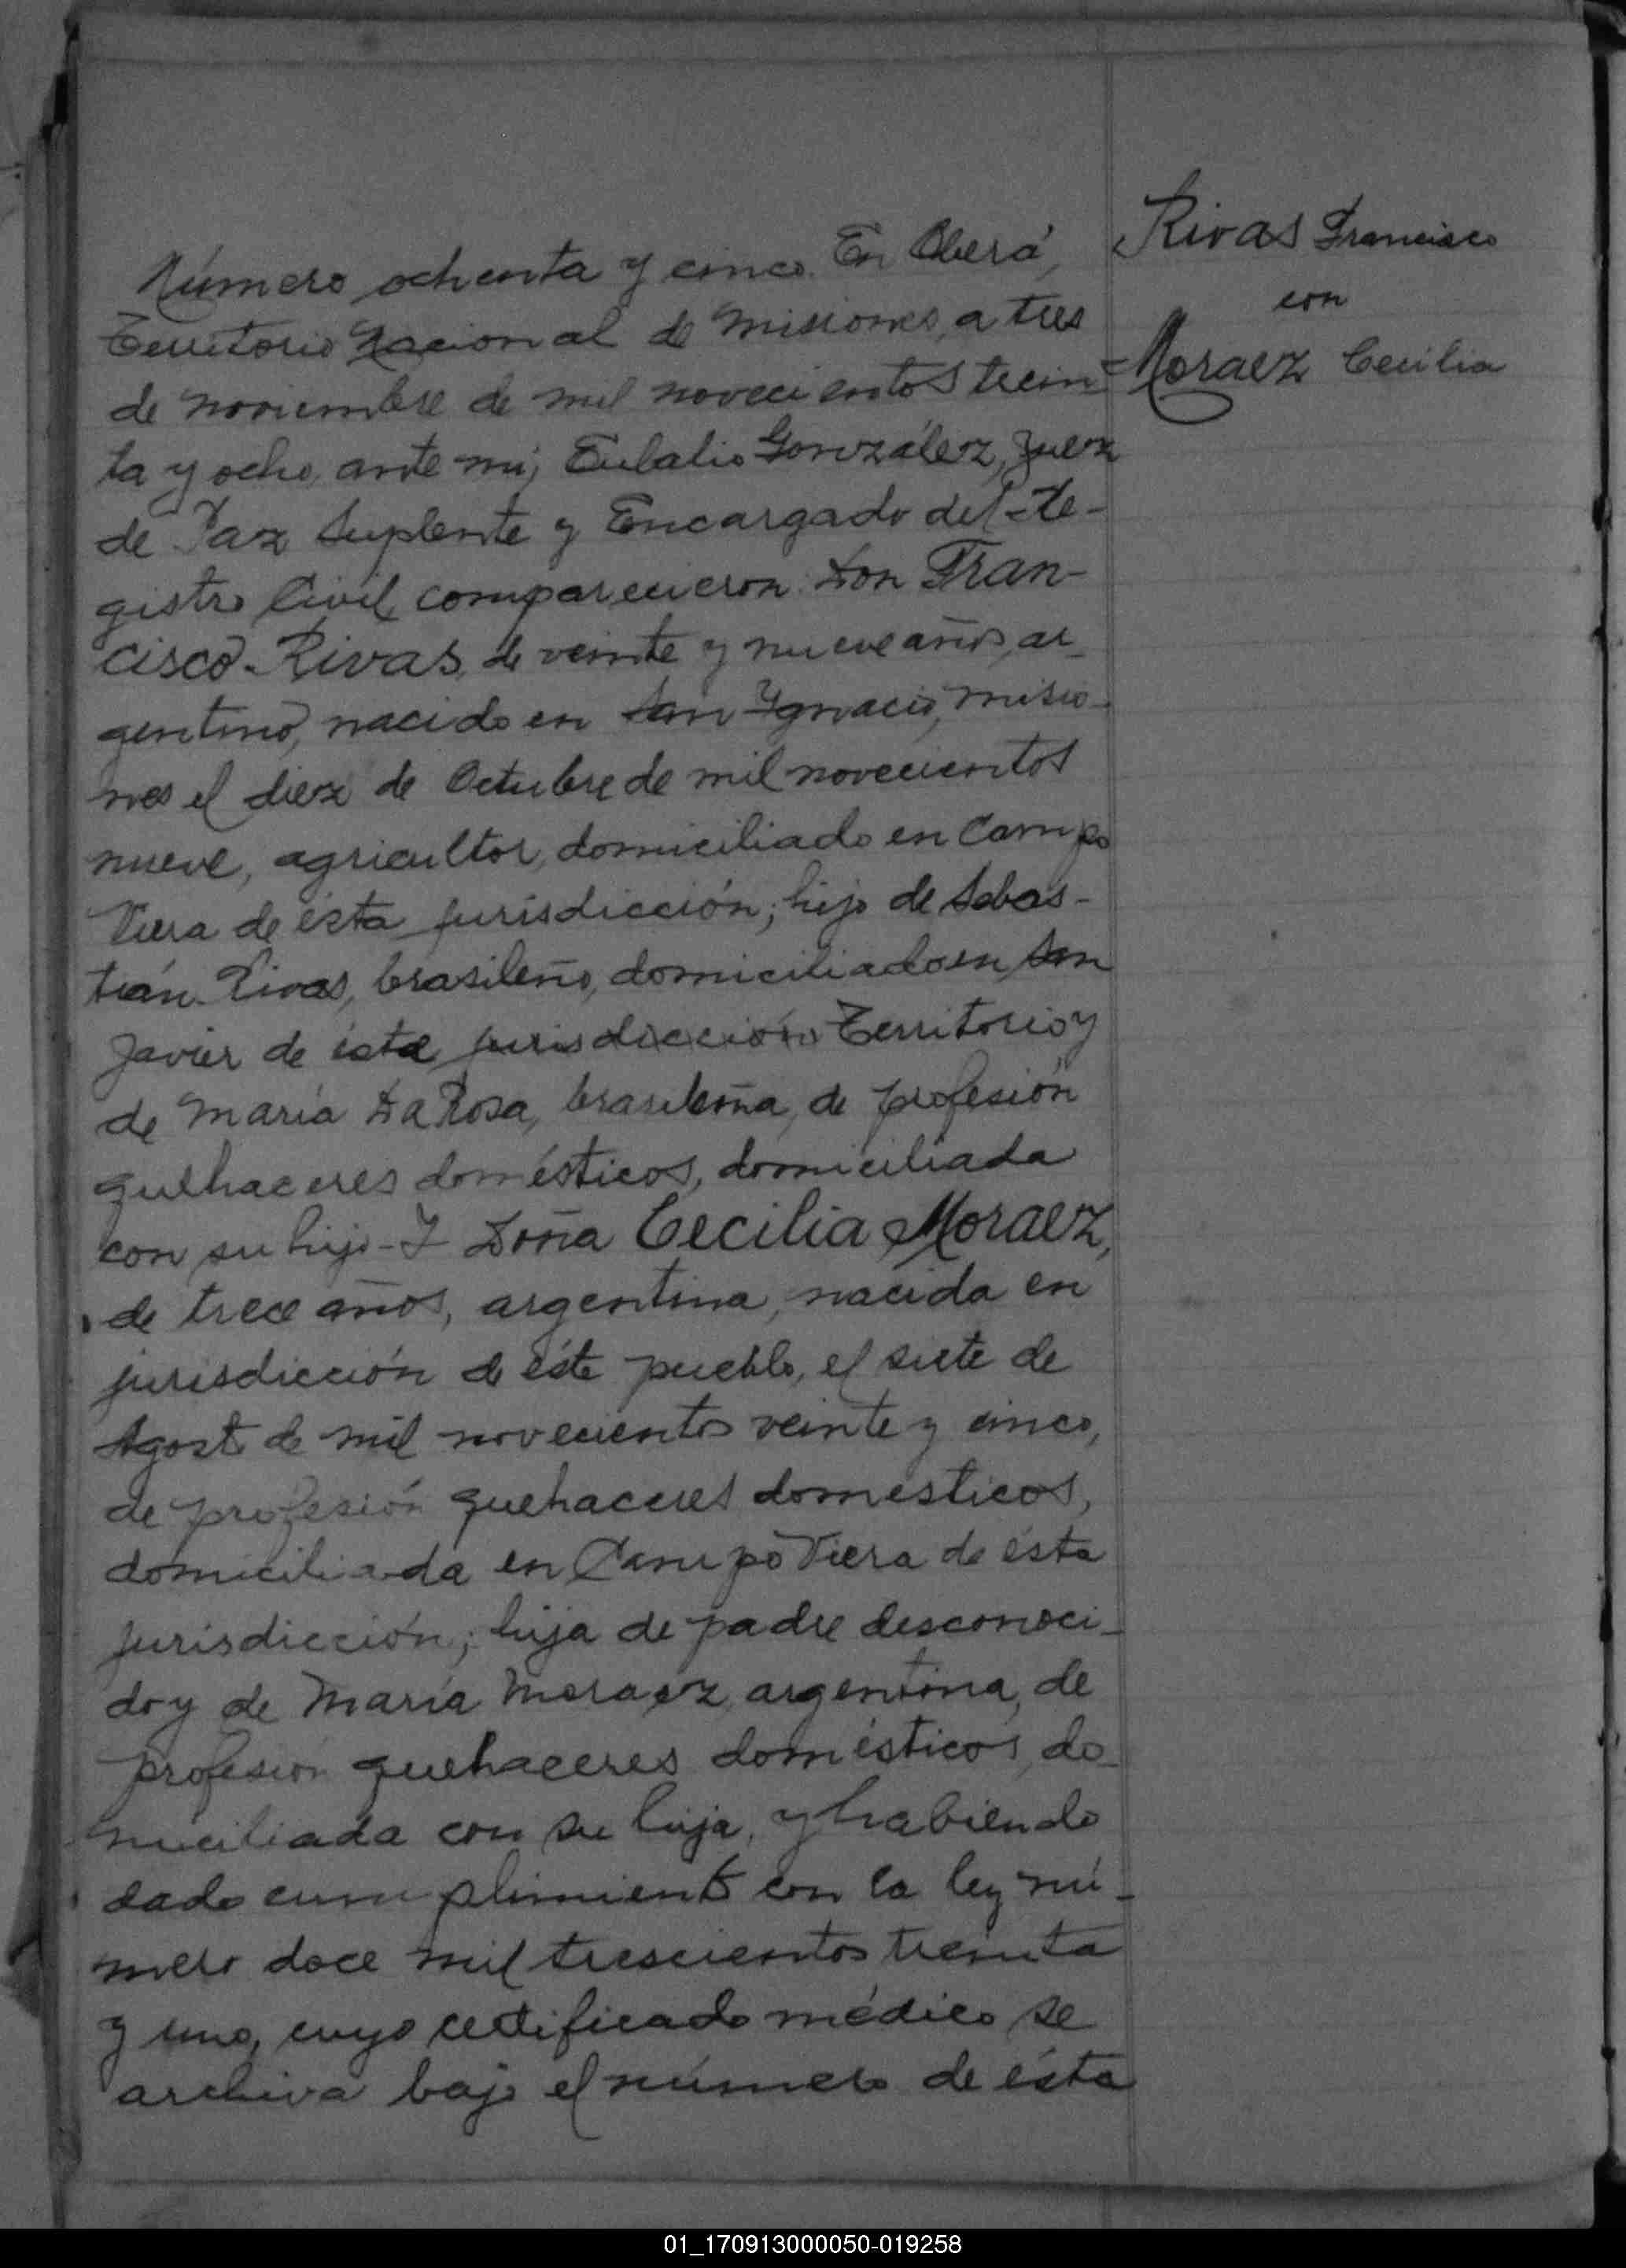 Rivas Francisco
con
Moraez Cecilia
Número ochenta y cinco. En Oberá,
Territorio Nacional de Misiones, a tres
de noviembre de mil novecientos trein-
ta y ocho, ante mí, Eulalio González, Juez
de Paz Suplente y Encargado del Re-
gistro Civil, comparecieron: Don Fran-
cisco Rivas, de veinte y nueve años, ar-
gentino, nacido en San Ygnacio, Misio-
nes el diez de Octubre de mil novecientos
nueve, agricultor, domiciliado en Campo
Viera de ésta jurisdicción; hijo de Sebas-
tián Rivas, brasileño, domiciliado en San
Javier de éste jurisdicción Territorio y
de María Da Rosa, brasileña, de profesión
quehaceres domésticos, domiciliada
con su hijo- Y Doña Cecilia Moraez,
de trece años, argentina, nacida en
jurisdicción de éste pueblo, el siete de
Agosto de mil novecientos veinte y cinco,
de profesión quehaceres domesticos,
domiciliada en Campo Viera de ésta
jurisdicción; hija de padre desconoci-
do y de María Moraez, argentina, de
profesión quehaceres domésticos, do-
miciliada con su hija, y habiendo
dado cumplimiento con la ley nú-
mero doce mil trescientos treinta
y uno, cuyo certificado médico se
archiva bajo el número de ésta
01_170913000050-019258